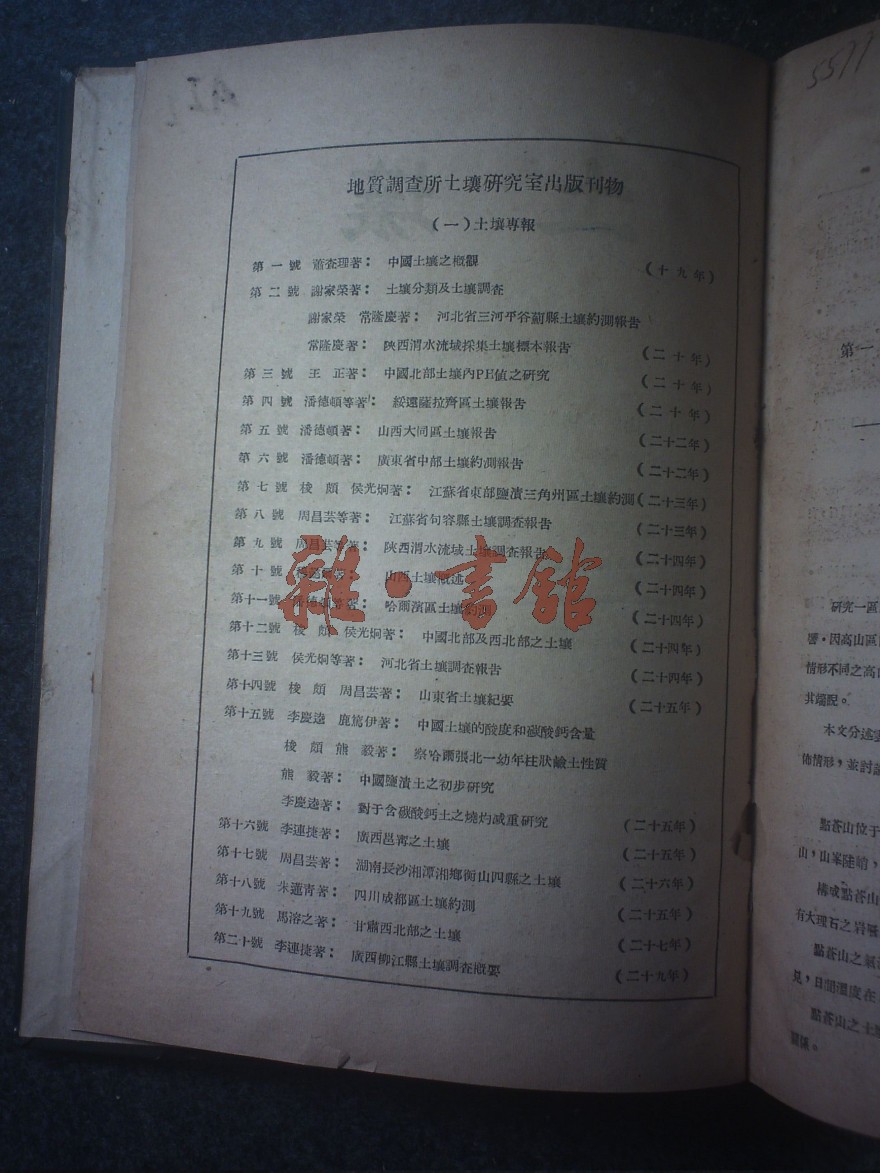 5577
地質調查所土壤研究室出版刊物
(一)土壤專報
第一號 蕭查理著: 中國土壤之概觀 (十九年)
第二號 謝家榮著: 土壤分類及土壤調查
謝家榮 常隆慶著: 河北省三河平谷薊縣土壤約測報告
常隆慶著: 陝西渭水流域採集土壤標本報告 (二十年)
第三號 王正著: 中國北部土壤內PH值之研究 (二十年)
第四號 潘德頓等著: 綏遠薩拉齊區土壤報告 (二十年)
第五號 潘德頓著: 山西大同區土壤報告 (二十二年)
第六號 潘德頓著: 廣東省中部土壤約測報告 (二十二年)
第七號 梭頗 侯光炯著: 江蘇省東部鹽漬三角州區土壤約測 (二十三年)
第八號 周昌芸等著: 江蘇省句容縣土壤調查報告 (二十三年)
第九號 周昌芸等著: 陝西渭水流域土壤調查報告 (二十四年)
第十號 著: 山西土壤概述 (二十四年)
第十一號 潘德頓等著: 哈爾濱區土壤約測 (二十四年)
第十二號 梭頗 侯光炯著: 中國北部及西北部之土壤 (二十四年)
第十三號 侯光炯等著: 河北省土壤調查報告 (二十四年)
第十四號 梭頗 周昌芸著: 山東省土壤紀要 (二十五年)
第十五號 李慶逵 鹿篤伊著: 中國土壤的酸度和碳酸鈣含量
梭頗 熊毅著: 察哈爾張北一幼年柱狀鹼土性質
熊毅著: 中國鹽漬土之初步研究
李慶逵著: 對于含碳酸鈣土之燒灼減重研究 (二十五年)
第十六號 李連捷著: 廣西邕寗之土壤 (二十五年)
第十七號 周昌芸著: 湖南長沙湘潭湘鄉衡山四縣之土壤 (二十六年)
第十八號 朱蓮青著: 四川成都區土壤約測 (二十五年)
第十九號 馬溶之著: 甘肅西北部之土壤 (二十七年)
第二十號 李連捷著: 廣西柳江縣土壤調查概要 (二十九年)
雜·書館
第一
研究一區
響,因高山區
情形不同之高
其端倪。
本文分述
佈情形,並討論
點蒼山位于
山,山峯陡峭,
構成點蒼山
有大理石之岩
點蒼山之氣
見,日間溫度在
點蒼山之土
關係。